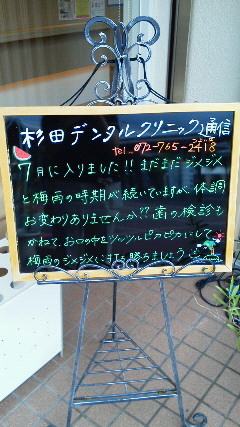 杉田デンタルクリニック通信
tel 072-765-2418
7月に入りました!!まだまだジメジメ
と梅雨の時期が続いていますが、体調
お変わりありませんか??歯の検診も
かねて、お口の中をツルツルピカピカにして
梅雨のジメジメに打ち勝ちましょう